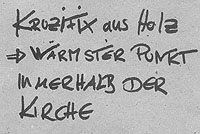 KRUZIFIX aus HOLZ
⇒ WÄRMSTER PUNKT
INNERHALB DER
KIRCHE